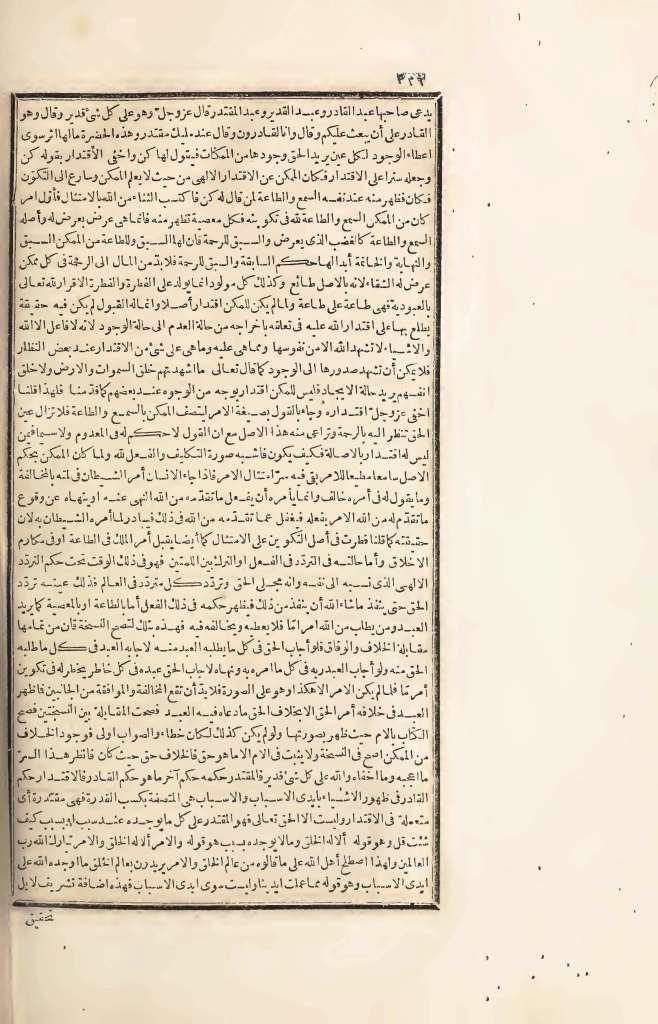 ٣٣٢
يدعى صاحبها عبد القادر وعبد القدير وعبد المقتدر قال عز وجل وهو على كل شئ قدير وقال وهو
القادر على أن يبعث عليكم وقال وانا لقادرون وقال عند مليك مقتدر وهذه الحضرة مالها اثر سوى
اعطاء الوجود لكل عين يريد الحق وجودها من الممكنات فيقول لها كن واخفى الاقتدار بقوله كن
وجعله سترا على الاقتدار فكان الممكن عن الاقتدار الالهى من حيث لا يعلم الممكن وسارع الى التكوّن
فكان فظهر منه عند نفسه السمع والطاعة لمن قال له كن فاكتسب الثناء من الله بالامتثال فأول امر
كان من الممكن السمع والطاعة لله فى تكوينه فكل معصية تظهر منه فانما هى عرض يعرض له وأصله
السمع والطاعة كالغضب الذى يعرض والسبق للرحمة فان لها السبق وللطاعة من الممكن السبق
والنهاية والخاتمة أبدا لها حكم السابقة والسبق للرحمة فلا بدّ من المآل الى الرحمة فى كل ممكن
عرض له الشقاء لانه بالاصل طائع وكذلك كل مولود انما يولد على الفطرة والفطرة الاقرار لله تعالى
بالعبودية فهى طاعة على طاعة ولما لم يكن للممكن اقتدار أصلا وانما له القبول لم يكن فيه حقيقة
يطلع بها على اقتدار الله عليه فى تعلقه باخراجه من حالة العدم الى حالة الوجود لانه لا فاعل الا الله
والاشياء لا تشهد الله الا من نفوسها ومما هى عليه وما هى على شئ من الاقتدار عند بعض النظار
فلا يمكن أن تشهد صدورها الى الوجود كما قال تعالى ما اشهدتهم خلق السموات والارض ولا خلق
انفسهم يريد حالة الايجاد فليس للممكن اقتدار بوجه من الوجوه عند بعضهم كما قدّمنا فلهذا قلنا
اخفى عز وجل اقتداره وجاء بالقول بصيغة الامر ليتصف الممكن بالسمع والطاعة فلا تزال عين
الحق تنظر اليه بالرحمة وتراعى منه هذا الاصل مع ان القول لا حكم له فى المعدوم ولا سيما فيمن
ليس له اقتدار بالاصالة فكيف يكون فاشبه صورة التكليف والفعل لله ولما كان الممكن بحكم
الاصل سامعا مطيعا للامر بقى فيه سرّ امتثال الامر فاذا جاء الانسان أمر الشيطان فى لمته بالمخالفة
وما يقول له فى أمره خالف وانما يأمره أن يفعل ما تقدّمه من الله النهى عنه او ينهاه عن وقوع
ما تقدّم له من الله الامر بفعله فيغفل عما تقدّمه من الله فى ذلك فيبادر لما أمره الشيطان به لان
حقيقته كما قلنا فطرت فى أصل التكوين على الامتثال كما أيضا يقبل أمر الملك فى الطاعة او فى مكارم
الاخلاق وأما حالته فى التردّد فى الفعل او الترك بين اللمتين فهو فى ذلك الوقت تحت حكم التردّد
الالهى الذى نسبه الى نفسه وانه مجلى الحق وتردد كل متردّد فى العالم فذلك عينه تردّد
الحق حتى ينفذ ما شاء الله أن ينفذ من ذلك فيظهر حكمه فى ذلك الفعل أما بالطاعة او بالمعصية كما يريد
العبد ومن يطلب من الله امرا مّا فلا يعطيه ويخالفه فيه فهذه بتلك لتصح النسخة فان من تمامها
مقابلة الخلاف والوفاق فلو أجاب الحق فى كل ما يطلبه العبد منه لاجابه العبد فى كل ما طلبه
الحق منه ولو أجاب العبد ربه فى كل ما امره به ونهاه لاجاب الحق عبده فى كل خاطر يخطر له فى تكوين
أمر مّا فلما لم يكن الامر الا هكذا وهو على الصورة فلا بدّ أن تقع المخالفة والموافقة من الجانبين فاظهر
العبد فى خلافه أمر الحق الا بخلاف الحق ما دعاه فيه العبد فصحت المقابلة بين النسختين فصح
الكتاب بالام حيث ظهر بصورتها ولو لم يكن كذلك لكان خطاء والصواب اولى فوجود الخلاف
من الممكن اصح فى النسخة ولا يثبت فى الام الا ما هو حق فالخلاف حق حيث كان فانظر هذا السر
ما اعجبه وما اخفاه والله على كل شئ قدير فالمقتدر حكمه حكم آخر ما هو حكم القادر فالاقتدار حكم
القادر فى ظهور الاشياء بايدى الاسباب والاسباب هى المتصفة بكسب القدرة فهى مقتدرة أى
متعملة فى الاقتدار وليست الا الحق تعالى فهو المقتدر على كل ما يوجده عند سبب او بسبب كيف
شئت قل وهو قوله ألا له الخلق وما لا يوجده بسبب هو قوله والامر ألا له الخلق والامر تبارك الله رب
العالمين ولهذا اصطلح أهل الله على ما قالوه من عالم الخلق والامر يريدون بعالم الخلق ما اوجده الله على
ايدى الاسباب وهو قوله مما عملت ايدينا وليست سوى ايدى الاسباب فهذه اضافة تشريف لا بل
تحقيق